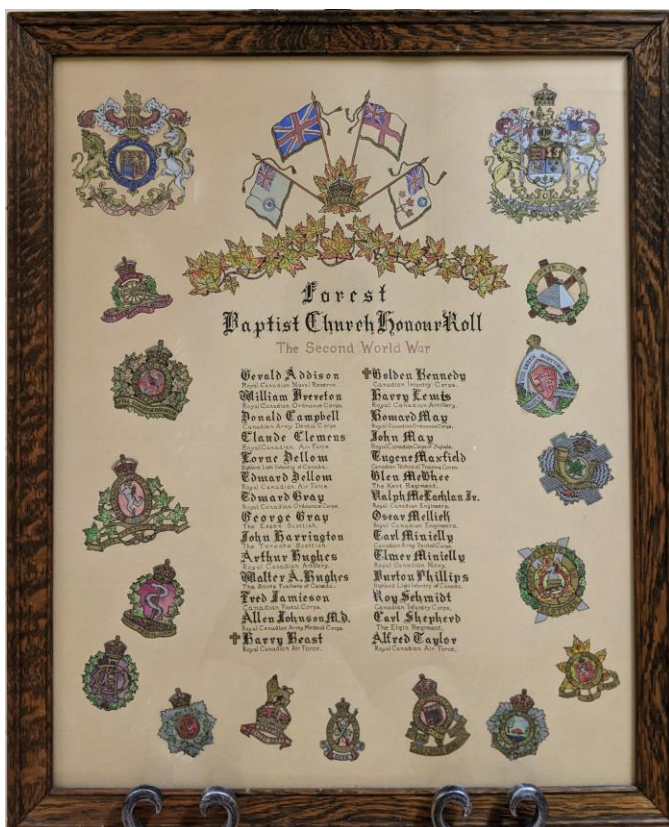 Forest
Baptist Church Honour Roll
The Second World War
Gerald Addison
Royal Canadian Naval Reserve.
William Brereton
Royal Canadian Ordnance Corps.
Donald Campbell
Canadian Army Dental Corps.
Claude Clemens
Royal Canadian Air Force.
Lorne Dellom
Highland Light Infantry of Canada.
Edward Dellom
Royal Canadian Air Force.
Edward Gray
Royal Canadian Ordnance Corps.
George Gray
The Essex Scottish.
John Harrington
The Toronto Scottish.
Arthur Hughes
Royal Canadian Artillery.
Walter A. Hughes
The Scots Fusiliers of Canada.
Fred Jamieson
Canadian Postal Corps.
Allen Johnson M.D.
Royal Canadian Army Medical Corps.
Harry Keast
Royal Canadian Air Force.
Golden Kennedy
Canadian Infantry Corps.
Harry Lewis
Royal Canadian Artillery.
Howard May
Royal Canadian Ordnance Corps.
John May
Royal Canadian Corps of Signals.
Eugene Maxfield
Canadian Technical Training Corps.
Glen McPhee
The Kent Regiment.
Ralph McLachlan Jr.
Royal Canadian Engineers.
Oscar Mellick
Royal Canadian Engineers.
Earl Minielly
Canadian Army Dental Corps.
Elmer Minielly
Royal Canadian Navy.
Burton Phillips
Highland Light Infantry of Canada.
Roy Schmidt
Canadian Infantry Corps.
Earl Shepherd
The Elgin Regiment.
Alfred Taylor
Royal Canadian Air Force.